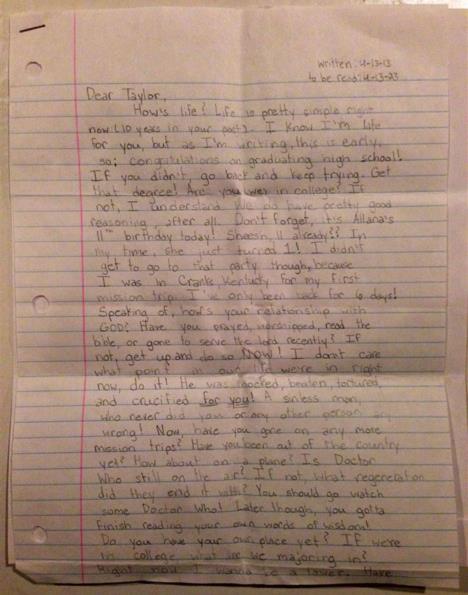 written: 4-13-13
to be read: 4-13-23
Dear Taylor,
How's life? Life is pretty simple right
now (10 years in your past). I know I'm late
for you, but as I'm writing, this is early,
so; congratulations on graduating high school!
If you didn't, go back and keep trying. Get
that degree! Are you in college? If
not, I understand. We do have pretty good
reasoning, after all. Don't forget, it's Allana's
11th birthday today! Sheesh, 11 already?! In
my time, she just turned 1! I didn't
get to go to that party though, because
I was in Cranks, Kentucky for my first
mission trip. I've only been back for 6 days!
Speaking of, how's your relationship with
GOD? Have you prayed, worshipped, read the
bible, or gone to serve the lord recently? If
not, get up and do so NOW! I don't care
what point in our life we're in right
now, do it! He was mocked, beaten, tortured,
and crucified for you! A sinless man,
who never did you or any other person any
wrong! Now, have you gone on any more
mission trips? Have you been out of the country
yet? How about on a plane? Is Doctor
Who still on the air? If not, what regeneration
did they end it with? You should go watch
some Doctor Who! Later though, you gotta
finish reading your own words of wisdom!
Do you have your own place yet? If we're
in college what are we majoring in?
Right now I wanna be a Have